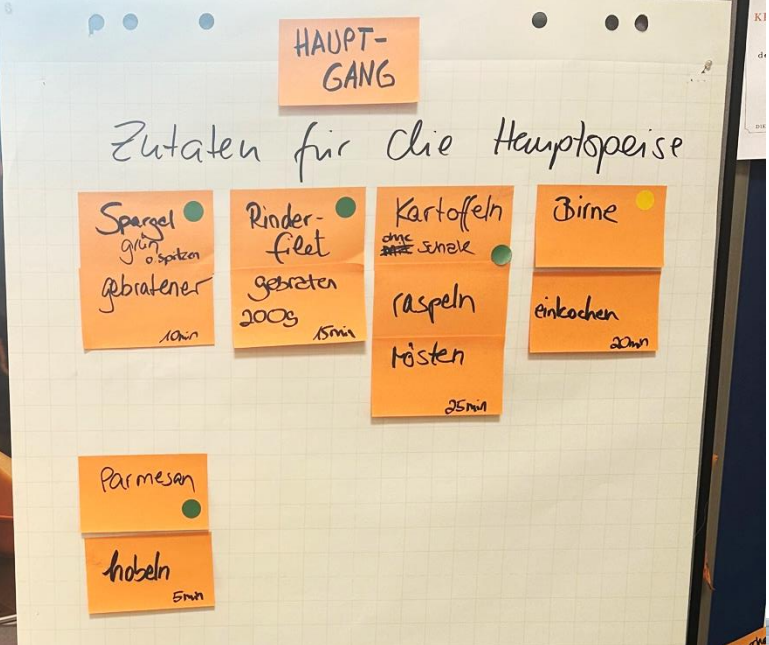 HAUPT-
GANG
Zutaten für die Hauptspeise
Spargel
grün
o. Spitzen
gebratener
10min
Rinder-
filet
gebraten
200g
15min
Kartoffeln
ohne Schale
raspeln
rösten
25min
Birne
einkochen
20min
Parmesan
hobeln
5min